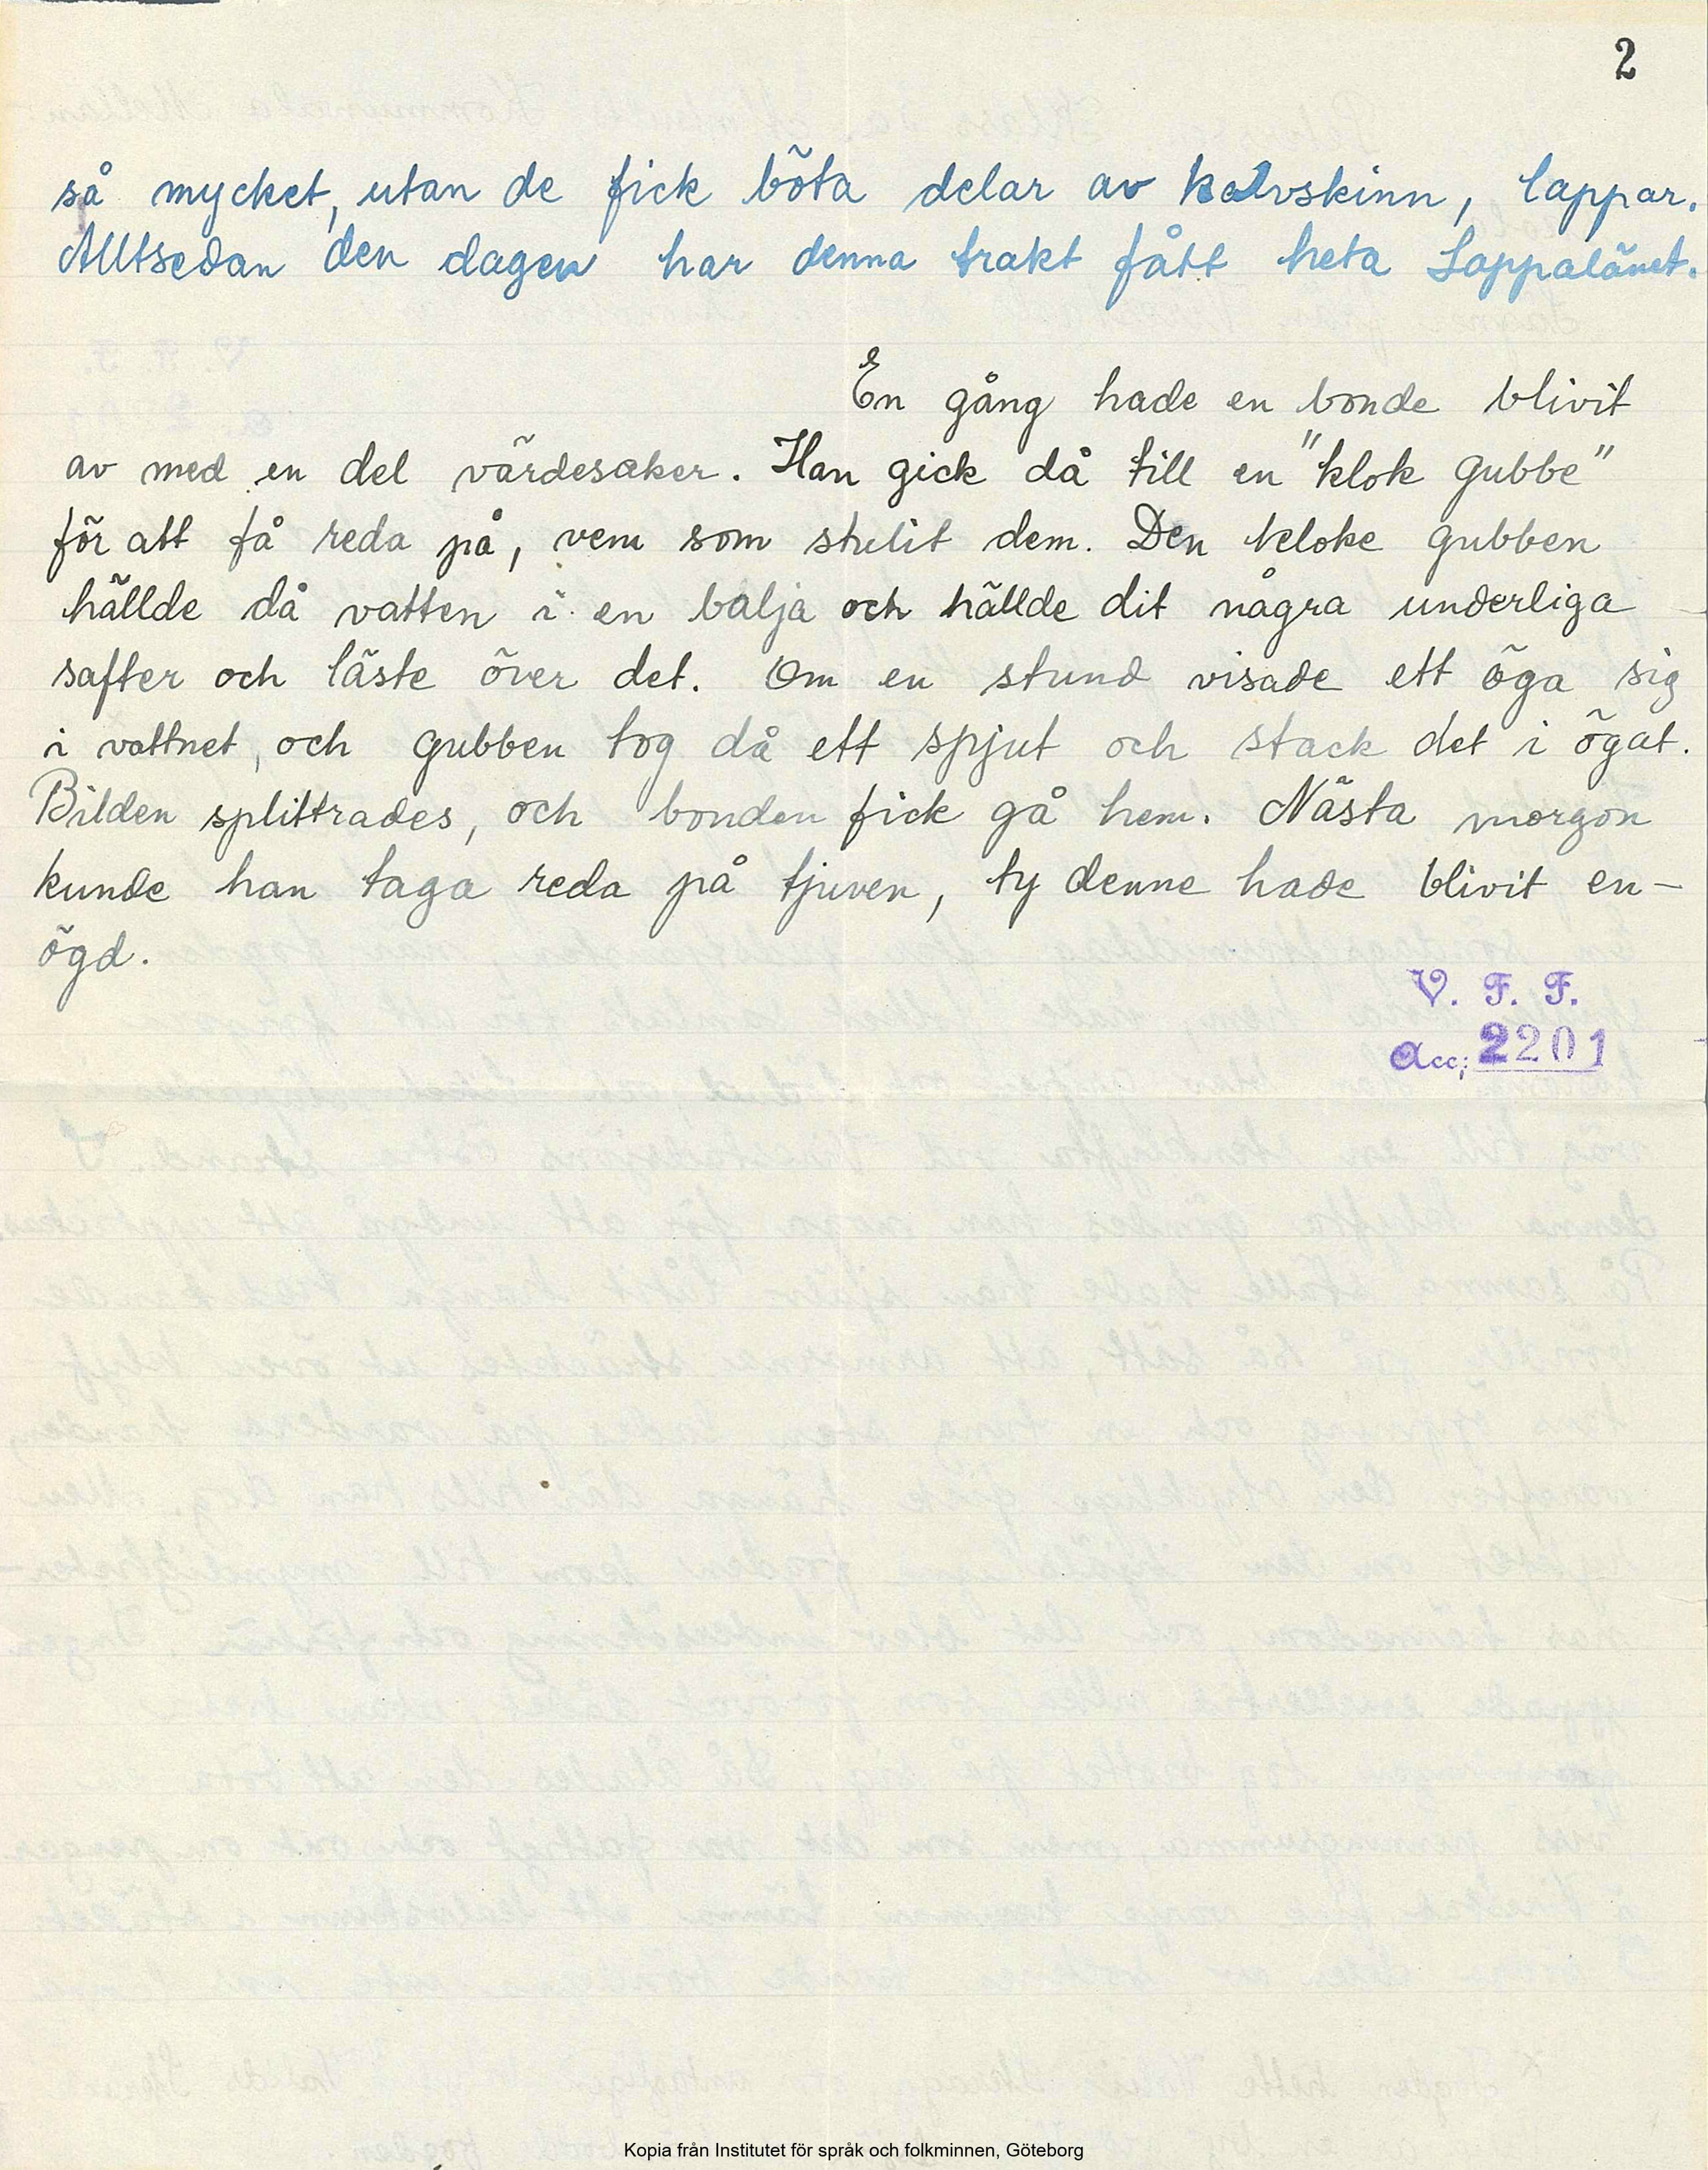 2
så mycket, utan de fick böta delar av kalvskinn, lappar.
Alltsedan den dagen har denna trakt fått heta Lappalänet.
En gång hade en bonde blivit
av med en del värdesaker. Han gick då till en "klok gubbe"
för att få reda på, vem som stulit dem. Den kloke gubben
hällde då vatten i en balja och hällde dit några underliga
safter och läste över det. Om en stund visade ett öga sig
i vattnet, och gubben tog då ett spjut och stack det i ögat.
Bilden splittrades, och bonden fick gå hem. Nästa morgon
kunde han taga reda på tjuven, ty denne hade blivit en-
ögd.
V. F. F.
Acc; 2201
Kopia från Institutet för språk och folkminnen, Göteborg